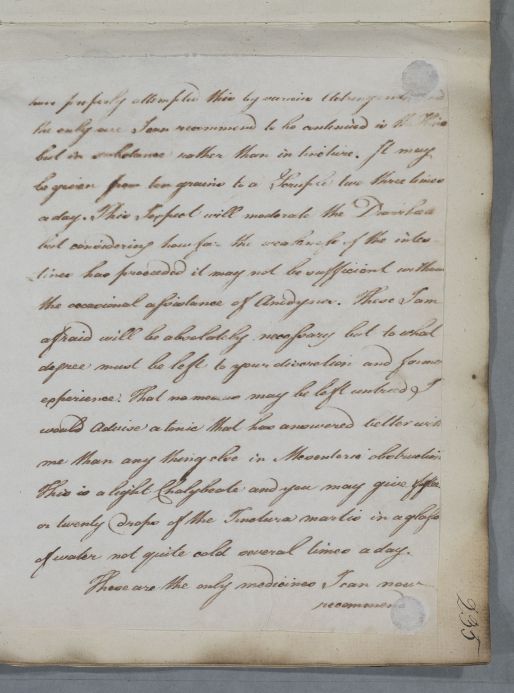 have properly attempted this by various Astringents, and
the only one I can recommend to be continued is the
but in substance rather than in tincture. It may
be given from ten grains to a Scruple two three times
a day. This I expect will moderate the Diarrhœa
but considering how far the weakness of the intes-
tines has proceeded it may not be sufficient without
the occasional assistance of Anodynes. These I am
afraid will be absolutely necessary but to what
degree must be left to your discretion and former
experience. That no means may be left untried I
would advise a tonic that has answered better with
me than any thing else in Mesenteric obstructions
This is a light Chalybeate and you may give fifteen
or twenty drops of the Tinctura martis in a glass
of water not quite cold several times a day.
These are the only medicines I can now
recommend
235